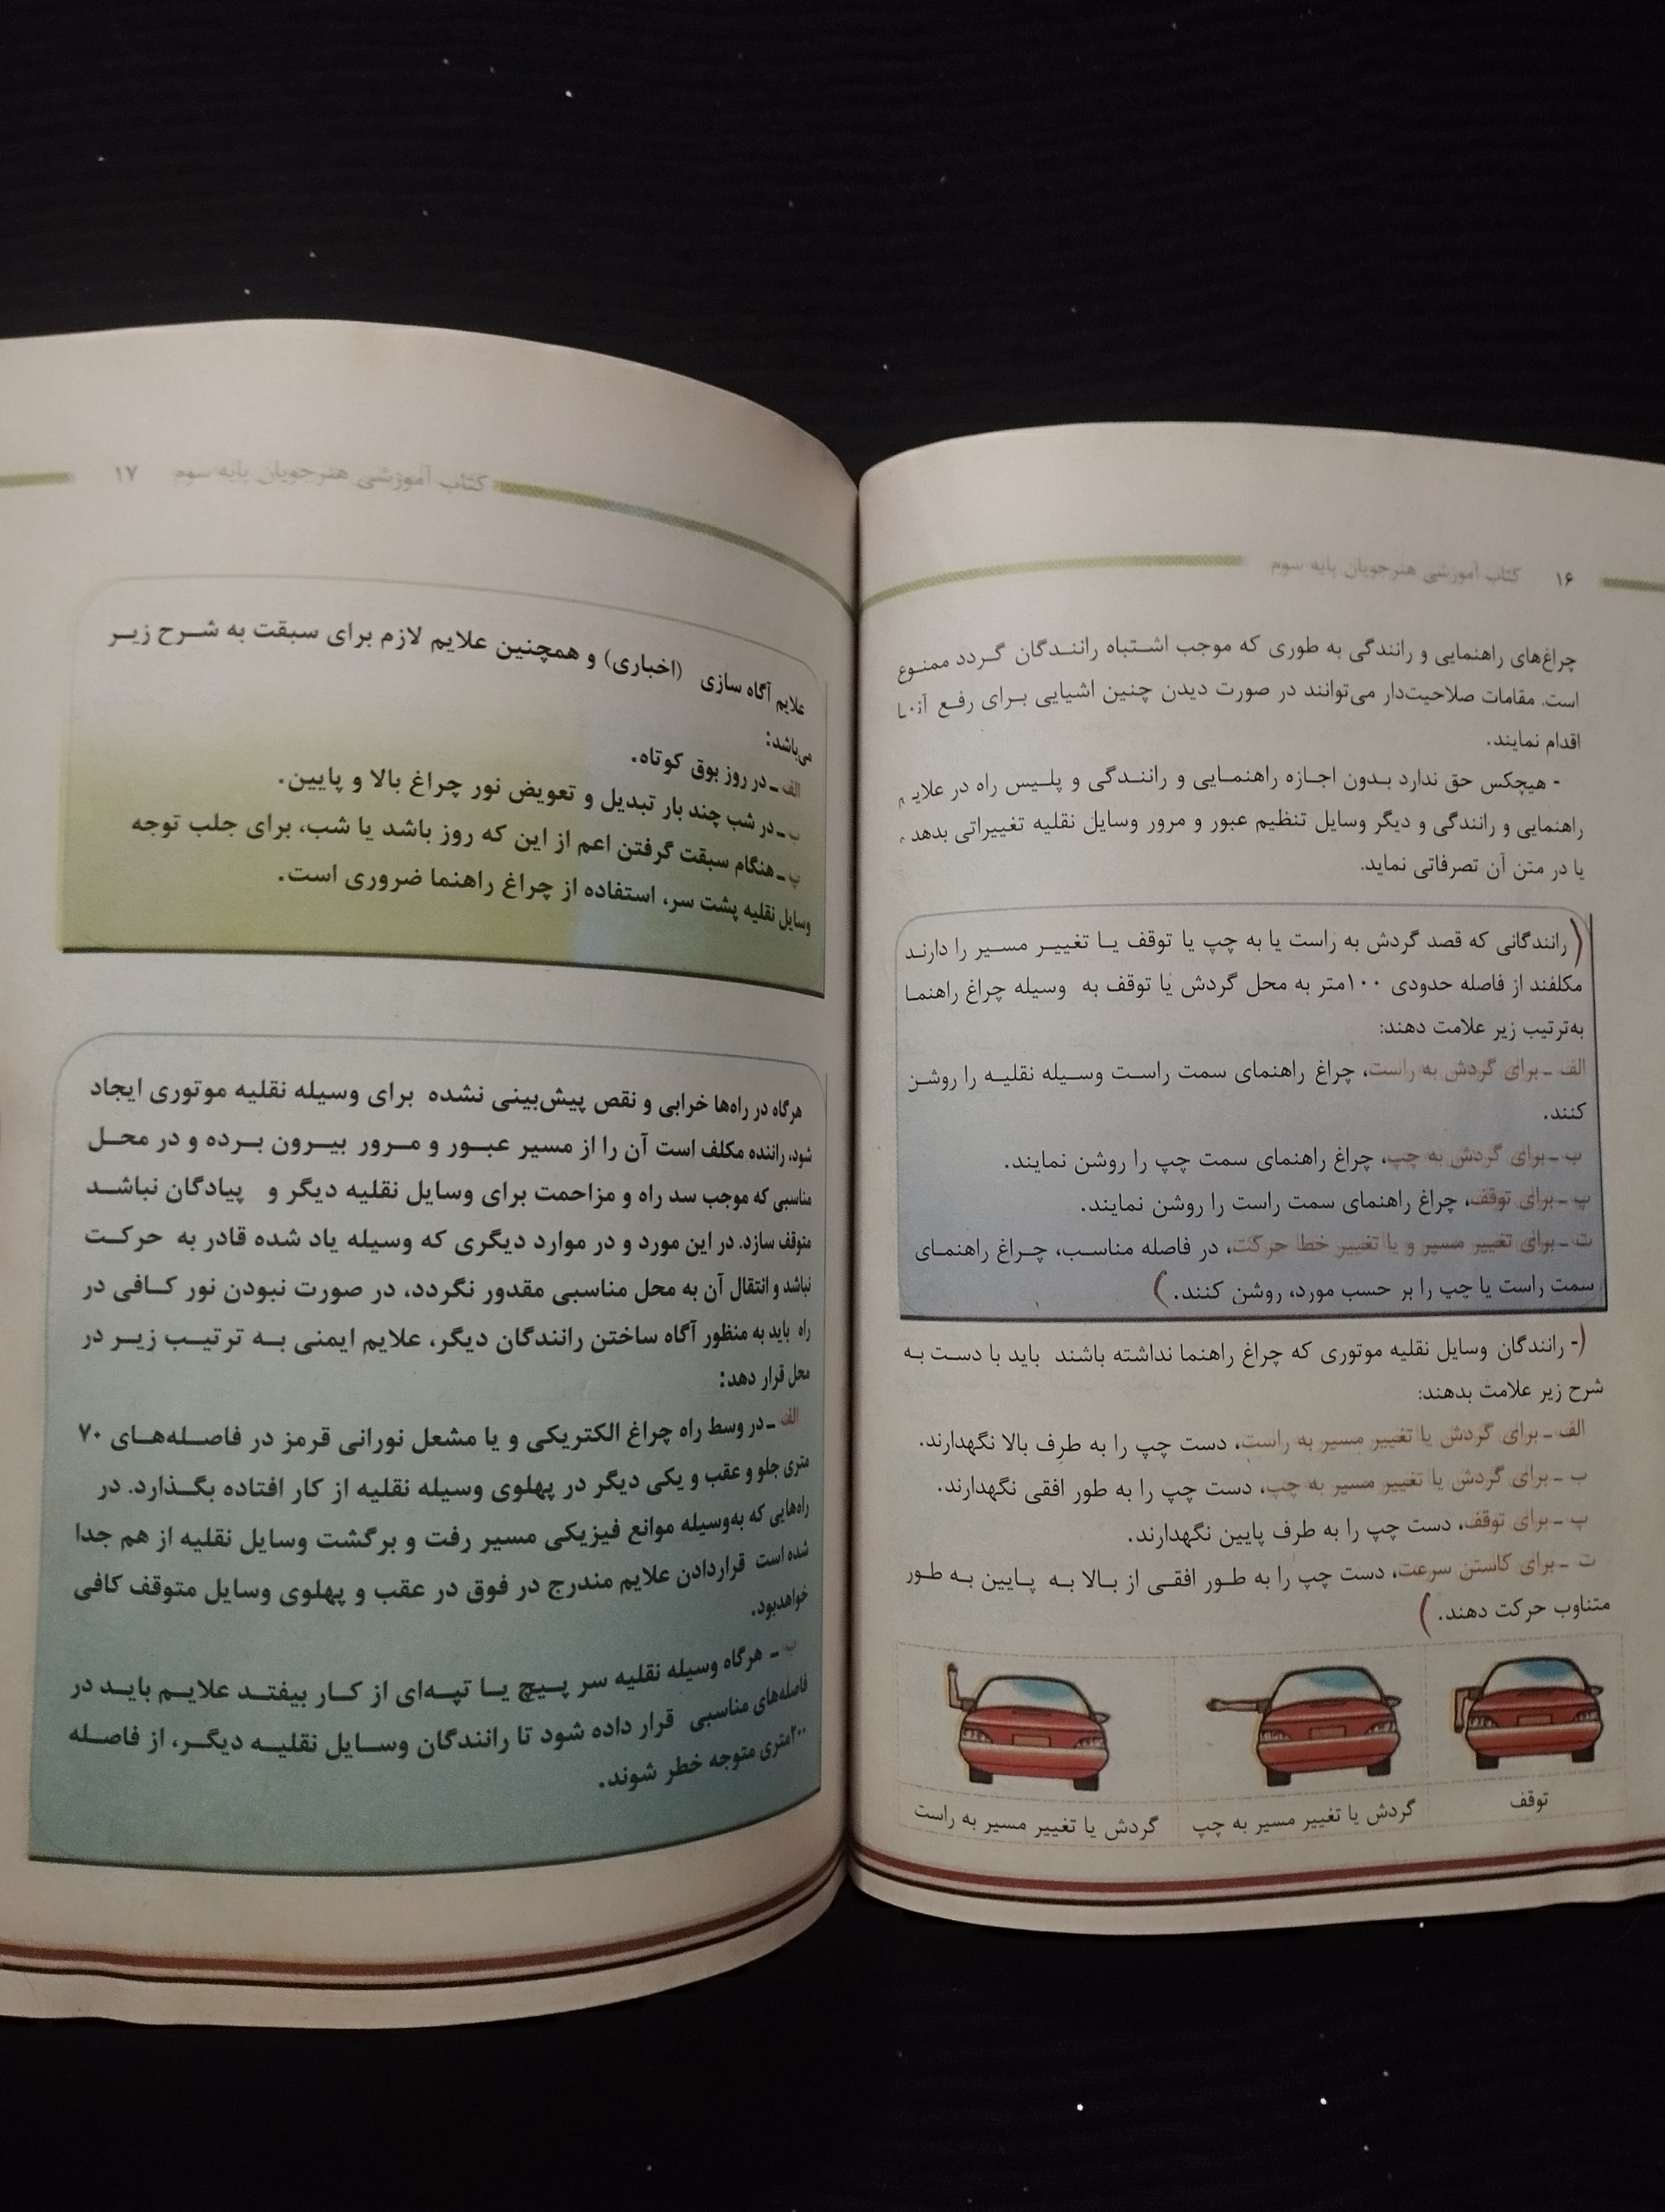 ۱۶ کتاب آموزشی هنرجویان پایه سوم
چراغ‌های راهنمایی و رانندگی به طوری که موجب اشتباه رانندگان گردد ممنوع
است. مقامات صلاحیت‌دار می‌توانند در صورت دیدن چنین اشیایی برای رفع آنها
اقدام نمایند.
- هیچکس حق ندارد بدون اجازه راهنمایی و رانندگی و پلیس راه در علایم
راهنمایی و رانندگی و دیگر وسایل تنظیم عبور و مرور وسایل نقلیه تغییراتی بدهد
یا در متن آن تصرفاتی نماید.
(رانندگانی که قصد گردش به راست یا به چپ یا توقف یا تغییر مسیر را دارند
مکلفند از فاصله حدودی ۱۰۰متر به محل گردش یا توقف به وسیله چراغ راهنما
به‌ترتیب زیر علامت دهند:
الف ـ برای گردش به راست، چراغ راهنمای سمت راست وسیله نقلیه را روشن
کنند.
ب ـ برای گردش به چپ، چراغ راهنمای سمت چپ را روشن نمایند.
پ ـ برای توقف، چراغ راهنمای سمت راست را روشن نمایند.
ت ـ برای تغییر مسیر و یا تغییر خط حرکت، در فاصله مناسب، چراغ راهنمای
سمت راست یا چپ را بر حسب مورد، روشن کنند.)
(- رانندگان وسایل نقلیه موتوری که چراغ راهنما نداشته باشند باید با دست به
شرح زیر علامت بدهند:
الف ـ برای گردش یا تغییر مسیر به راست، دست چپ را به طرف بالا نگهدارند.
ب ـ برای گردش یا تغییر مسیر به چپ، دست چپ را به طور افقی نگهدارند.
پ ـ برای توقف، دست چپ را به طرف پایین نگهدارند.
ت ـ برای کاستن سرعت، دست چپ را به طور افقی از بالا به پایین به طور
متناوب حرکت دهند.)
توقف
گردش یا تغییر مسیر به چپ
گردش یا تغییر مسیر به راست
کتاب آموزشی هنرجویان پایه سوم ۱۷
علایم آگاه سازی (اخباری) و همچنین علایم لازم برای سبقت به شرح زیر
می‌باشد:
الف ـ در روز بوق کوتاه.
ب ـ در شب چند بار تبدیل و تعویض نور چراغ بالا و پایین.
پ ـ هنگام سبقت گرفتن اعم از این که روز باشد یا شب، برای جلب توجه
وسایل نقلیه پشت سر، استفاده از چراغ راهنما ضروری است.
هرگاه در راه‌ها خرابی و نقص پیش‌بینی نشده برای وسیله نقلیه موتوری ایجاد
شود، راننده مکلف است آن را از مسیر عبور و مرور بیرون برده و در محل
مناسبی که موجب سد راه و مزاحمت برای وسایل نقلیه دیگر و پیادگان نباشد
متوقف سازد. در این مورد و در موارد دیگری که وسیله یاد شده قادر به حرکت
نباشد و انتقال آن به محل مناسبی مقدور نگردد، در صورت نبودن نور کافی در
راه باید به منظور آگاه ساختن رانندگان دیگر، علایم ایمنی به ترتیب زیر در
محل قرار دهد:
الف ـ در وسط راه چراغ الکتریکی و یا مشعل نورانی قرمز در فاصله‌های ۷۰
متری جلو و عقب و یکی دیگر در پهلوی وسیله نقلیه از کار افتاده بگذارد. در
راه‌هایی که به‌وسیله موانع فیزیکی مسیر رفت و برگشت وسایل نقلیه از هم جدا
شده است قراردادن علایم مندرج در فوق در عقب و پهلوی وسایل متوقف کافی
خواهدبود.
ب ـ هرگاه وسیله نقلیه سر پیچ یا تپه‌ای از کار بیفتد علایم باید در
فاصله‌های مناسبی قرار داده شود تا رانندگان وسایل نقلیه دیگر، از فاصله
۲۰۰متری متوجه خطر شوند.